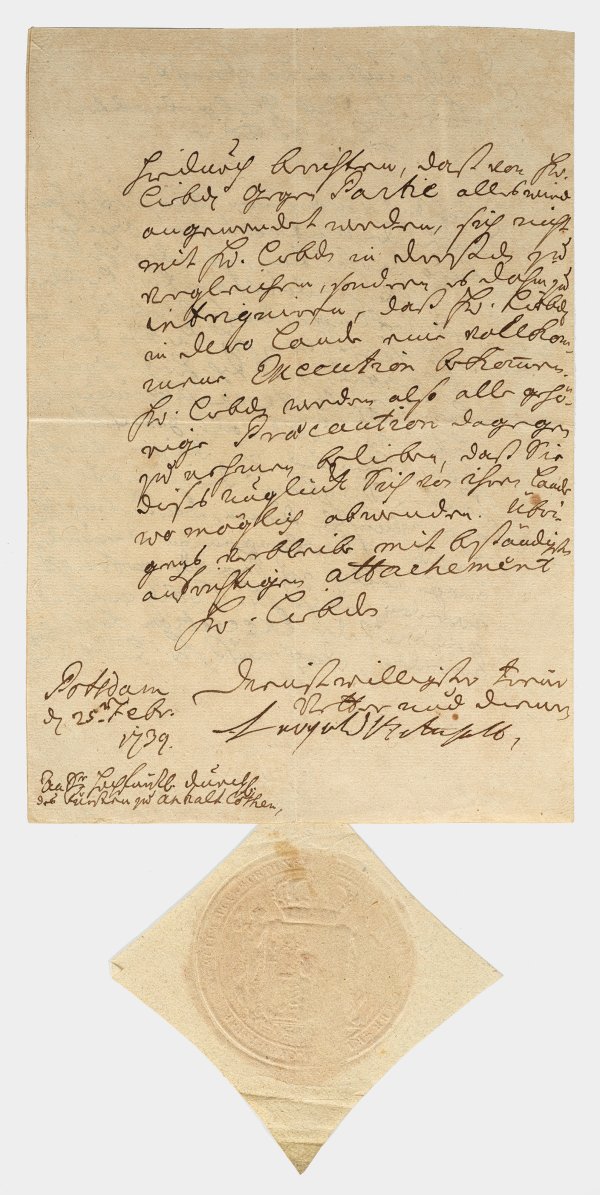 hiedurch berichten, daß von Ew.
Liebd. gegen Partie alles wird
angewendet werden, sich nicht
mit Ew. Liebd. in der zu
vergleichen, sondern es dahin zu
intriguiren, daß Ew. Liebd.
in dero Lande eine vollkom-
mene Execution bekommen.
Ew. Liebd. werden also alle gehö-
rige Præcaution dagegen
zu nehmen belieben, daß Sie
dieses Unglück Sich von ihrem Lande
wo möglich abwenden. Übri-
gens verbleibe mit beständig
aufrichtigen attachement
Ew. Liebd.
Dienstwilligster treuer
Vetter und Diener
Leopold vAnhalt,
Potsdam
d. 25ten Febr.
1739.
An Sr. Hochfürstl. Durchl.
des Fürsten zu Anhalt Cöthen,